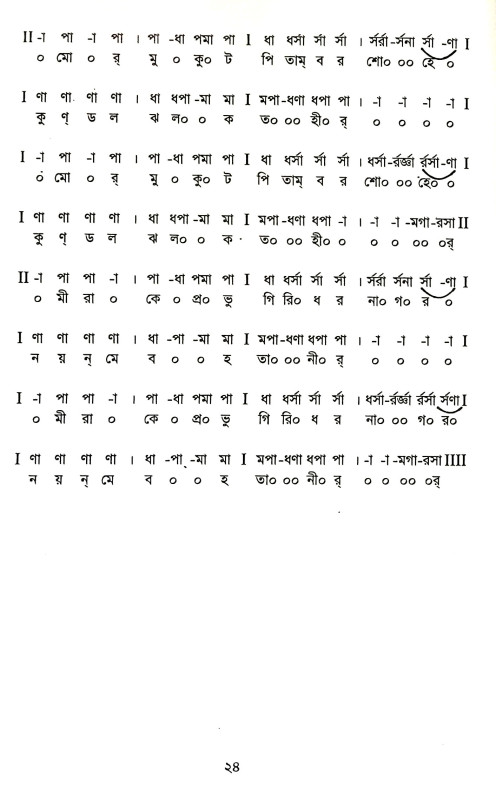 II -া পা -া পা । পা -ধা পমা পা I ধা ধর্সা র্সা র্সা । র্সর্রা -র্সনা র্সা -ণা I
০ মো ০ র্ মু ০ কু০ ট পি তাম্ ব র শো০ ০০ হে ০
I ণা ণা ণা ণা । ধা ধপা -মা মা I মপা -ধণা ধপা পা । -া -া -া -া I
কু ণ্ ড ল ঝ ল০ ০ ক ত০ ০০ হী০ র্ ০ ০ ০ ০
I -া পা -া পা । পা -ধা পমা পা I ধা ধর্সা র্সা র্সা । ধর্সা -র্রর্জ্ঞা র্রর্সা -ণা I
০ মো ০ র্ মু ০ কু০ ট পি তাম্ ব র শো০ ০০ হে০ ০
I ণা ণা ণা ণা । ধা ধপা -মা মা I মপা -ধণা ধপা -া । -া -া -মগা -রসা II
কু ণ্ ড ল ঝ ল০ ০ ক ত০ ০০ হী০ ০ ০ ০ ০০ ০র্
II -া পা পা -া । পা -ধা পমা পা I ধা ধর্সা র্সা র্সা । র্সর্রা র্সনা র্সা -ণা I
০ মী রা ০ কে ০ প্র০ ভু গি রি০ ধ র না০ গ০ র ০
I ণা ণা ণা ণা । ধা -পা -মা মা I মপা -ধণা ধপা পা । -া -া -া -া I
ন য় ন্ মে ব ০ ০ হ তা০ ০০ নী০ র্ ০ ০ ০ ০
I -া পা পা -া । পা -ধা পমা পা I ধা ধর্সা র্সা র্সা । ধর্সা -র্রর্জ্ঞা র্রর্সা র্সণা I
০ মী রা ০ কে ০ প্র০ ভু গি রি০ ধ র না০ ০০ গ০ র০
I ণা ণা ণা ণা । ধা -পা -মা মা I মপা -ধণা ধপা পা । -া -া -মগা -রসা IIII
ন য় ন্ মে ব ০ ০ হ তা০ ০০ নী০ র্ ০ ০ ০০ ০র্
২৪